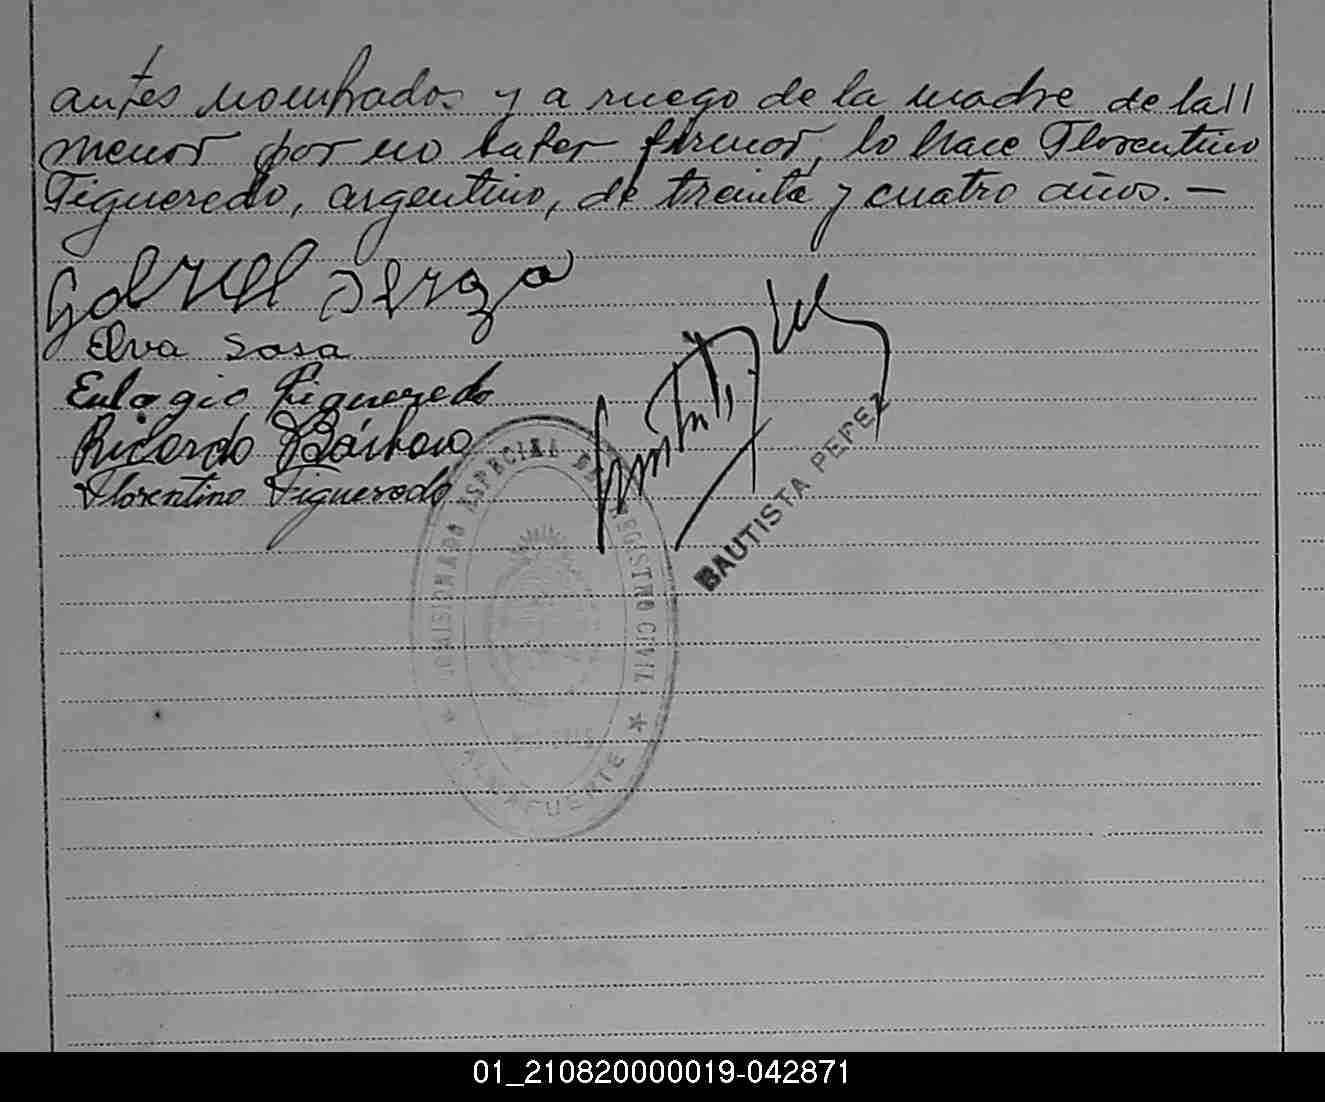 antes nombrados y a ruego de la madre de la//
menor por no saber firmar, lo hace Florentino
Figueredo, argentino, de treinta y cuatro años. —
Gabriel
Elva Sosa
Eulogio Figueredo
Ricardo Bárbaro
Florentino Figueredo
BAUTISTA PEREZ
COMISIONADO ESPECIAL DE REGISTRO CIVIL
ALMAFUERTE
01_210820000019-042871